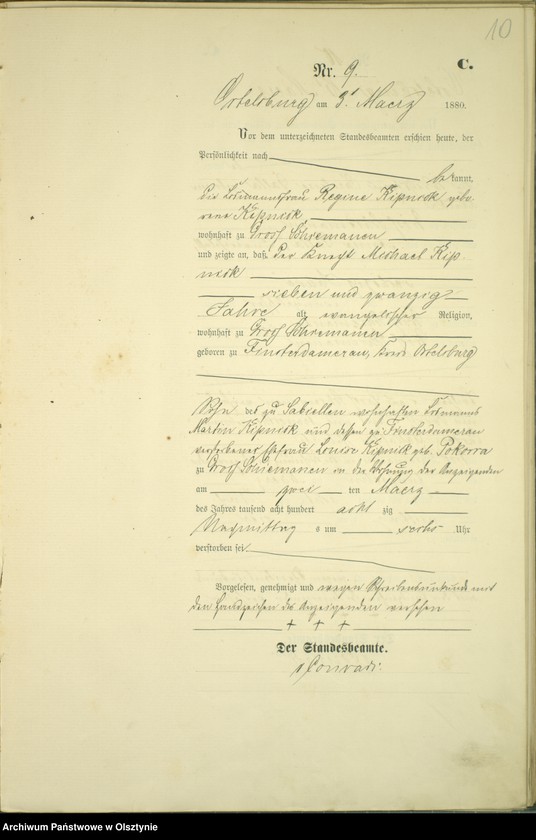 10
C.
Nr. 9.
Ortelsburg am 3t Maerz 1880.
Vor dem unterzeichneten Standesbeamten erschien heute, der
Persönlichkeit nach
bekannt,
die Losmannsfrau Regine Kipnick gebo
rene Kipnick,
wohnhaft zu Gross Schiemanen
und zeigte an, daß der Knecht Michael Kip
nick
sieben und zwanzig
Jahre alt, evangelischer Religion,
wohnhaft zu Gross Schiemanen
geboren zu Finsterdamerau, Kreis Ortelsburg
Sohn des zu Sabiellen wohnhaften Losmanns
Martin Kipnick und dessen zu Finsterdamerau
verstorbenen Ehefrau Louise Kipnick geb. Pokorra
zu Gross Schiemanen in der Wohnung der Anzeigenden
am zwei ten Maerz
des Jahres tausend acht hundert acht zig
Nachmittag s um sechs Uhr
verstorben sei
Vorgelesen, genehmigt und wegen Schreibensunkunde mit
den Handzeichen der Anzeigenden versehen
+ + +
Der Standesbeamte.
Conradi.
Archiwum Państwowe w Olsztynie